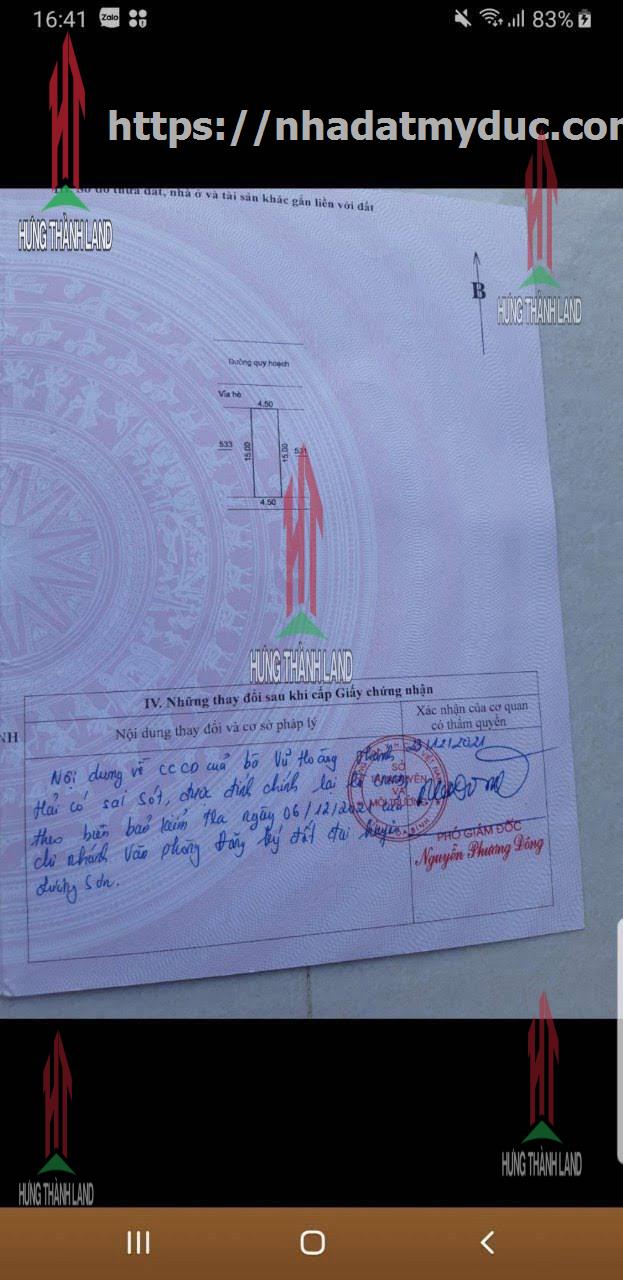 16:41 Zalo 83%
https://nhadatmyduc.com
III. Sơ đồ thửa đất, nhà ở và tài sản khác gắn liền với đất
HƯNG THÀNH LAND
B
HƯNG THÀNH LAND
Đường quy hoạch
Vỉa hè
4.50
533 15.00 15.00 531
4.50
HƯNG THÀNH LAND
IV. Những thay đổi sau khi cấp Giấy chứng nhận
NH Nội dung thay đổi và cơ sở pháp lý
Xác nhận của cơ quan
có thẩm quyền
Nội dung về CCCD của bà Vũ Hoàng Thanh
Hải có sai sót, được đính chính lại
theo biên bản kiểm tra ngày 06/12/2021 của
chi nhánh Văn phòng Đăng ký đất đai huyện
Lương Sơn.
23/12/2021
SỞ
TÀI NGUYÊN
VÀ
MÔI TRƯỜNG
PHÓ GIÁM ĐỐC
Nguyễn Phương Đông
HƯNG THÀNH LAND
HƯNG THÀNH LAND